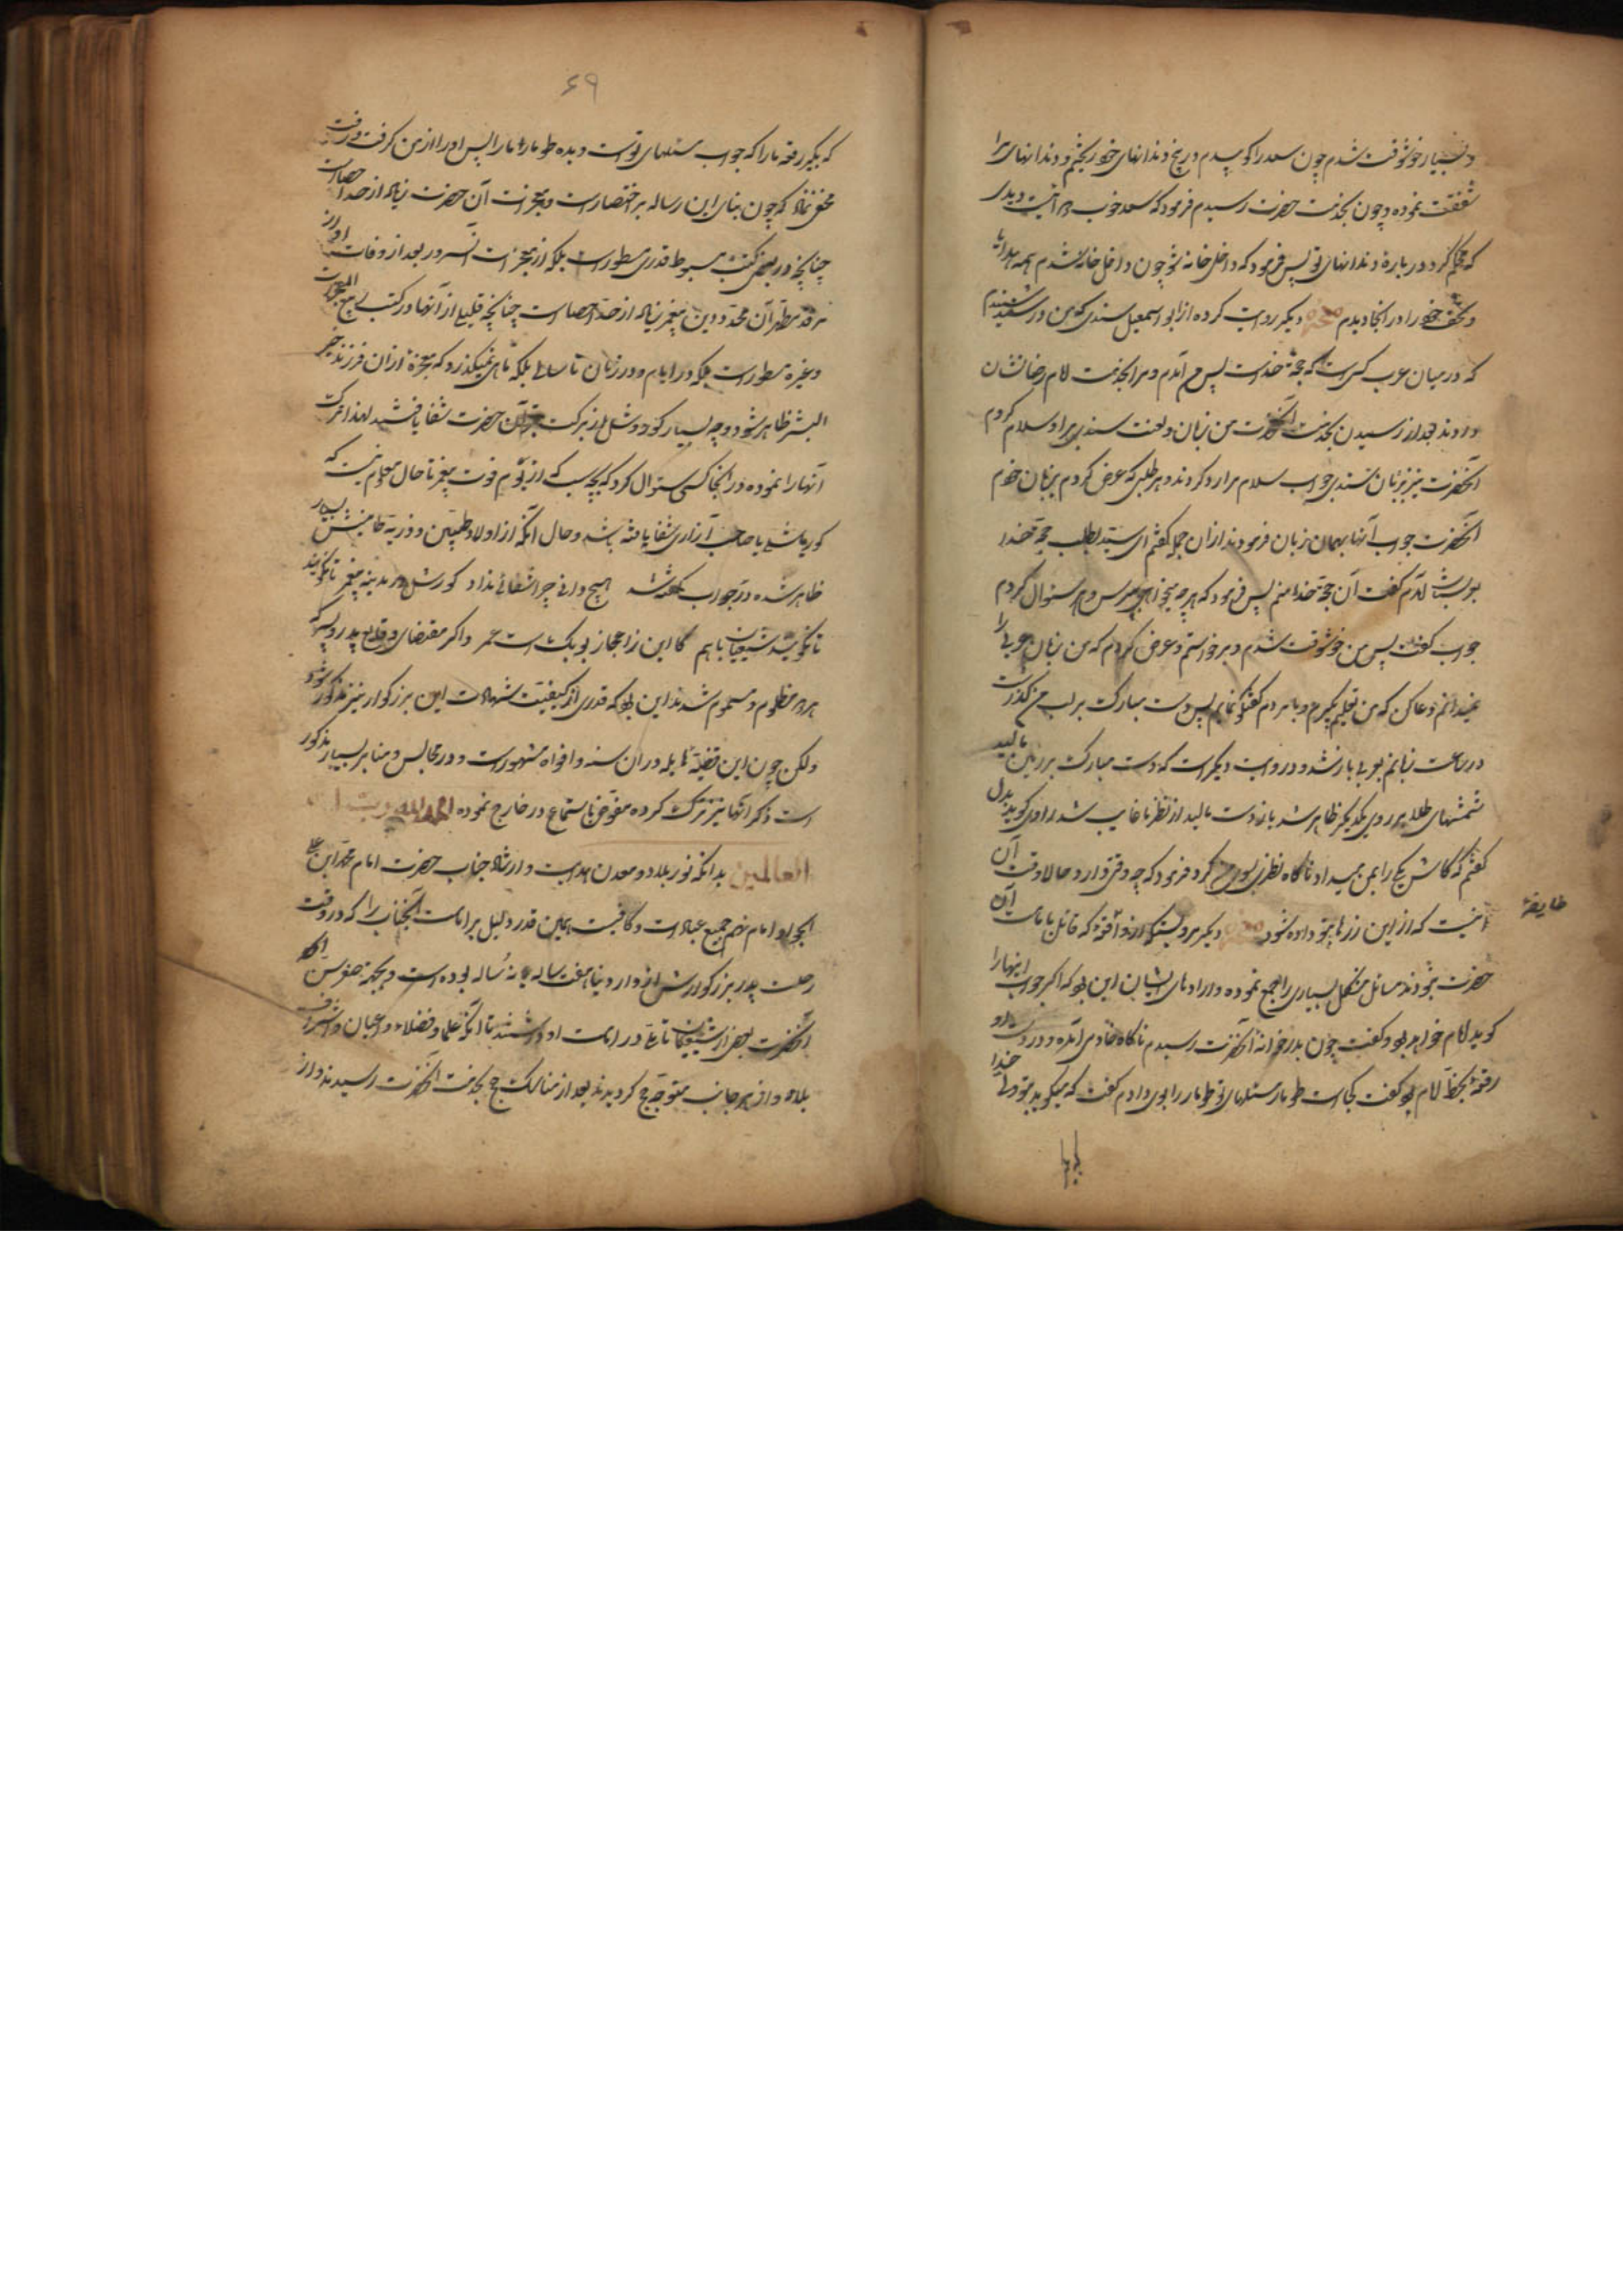 و بسیار خوشوقت شدم چون سعد را کو پسدم در پنج دندانهای خود ریختم و دندانهای مرا
شفقت نموده و چون بخدمت حضرت رسیدم فرمود که سعد خوب است و بدر
که حکم کرد در بارهٔ دندانهای تو پس فرمود که داخل خانه شو چون داخل خانه شدم همه هدایا
و تحف خود را در آنجا دیدم معجزه دیگر روایت کرده از ابو اسمعیل سندی که من در سند شنیدم
که در میان عرب کسی است که حجة خداست پس می آمدم و مرا بخدمت امام رضا نشان
دادند بعد از رسیدن بخدمت آنحضرت من زبان و لغت سندی بر او سلام کردم
آنحضرت نیز بزبان سندی جواب سلام مرا رد کردند و هر مطلبی که عرض کردم بزبان خودم
آنحضرت جواب آنها بهمان زبان فرمودند از آن جمله گفتم ای سید بطلب حجة خدا
آمدم گفت آن حجة خدا منم پس فرمود که هر چه میخواهی بپرس و هر سئوال کردم
جواب گفت پس من خوشوقت شدم و برخواستم و عرض کردم که من زبان عربی را
نمیدانم دعا کن که من تعلیم بگیرم و با مردم گفتگو نمایم پس دست مبارک بر لب من گذاشت
در ساعت زبانم بعربی باز شد و در روایت دیگر است که دست مبارک بر زمین مالید
شمشهای طلا بر روی یکدیگر ظاهر شد باز دست مالید از نظر ما غایب شد راوی گوید بدل
گفتم که کاش یکی را بمن میداد ناگاه نظر بسوی من کرد و فرمود که چه وقتی دارد حالا وقت آن
نیست که از این زرها بتو داده شود معجزه دیگر مرویست از واقفه که قائل بامامت آن
حضرت نبودند مسائل مشکل بسیاری را جمع نموده و ارادهای ایشان این بود که اگر جواب اینها را
گوید امام خواهد بود و گفت چون بدر خانهٔ آنحضرت رسیدم ناگاه خادمی آمده و در دست او
رقعهٔ بخط امام بود گفت کجاست طومار مسئلهای تو طومار را بوی دادم گفت که میگوید بتو ولی خدا
طایفهٔ
۶۹
که بگیر رقعه ما را که جواب مسئلهای تو است و بده طومار ما را پس او را از من گرفت و رفت
مخفی نماند که چون بنای این رساله بر اختصار است و معجزات آن حضرت زیاد از حد احصا است
چنانچه در بعضی کتب مبسوط قدری مسطور است بلکه از معجزات آنسرور بعد از وفات او در
مرقد مطهر آن محمد و دین پیغمبر زیاد از حد احصا است چنانچه قلیلی از آنها در کتب المعجزات
و غیره مسطور است بلکه در ایام و در زمان تا سالی بلکه ماهی نمیگذرد که معجزهٔ از آن فرزند خیر
البشر ظاهر شود و چه بسیار کور و شل از برکت قبر آن حضرت شفا یافتند لهذا ترک
آنها را نموده در آنجا کسی سئوال کرد که چه سبب که از یوم فوت پیغمبر تا حال معلوم نیست که
کور باشد یا صاحب آزاری شفا یافته باشد و حال آنکه از اولاد طیبین و ذریه خامنش بسیار
ظاهر شده در جواب گفته شد هیچ دانی چرا شفائی نداد کور و شل در مدینه پیغمبر تا نگویند
تا نگویند شیعیان باهم کاین ز اعجاز بوبکر است عمر و اگر مقتضای وقایع پدر و پسر که
هر دو مظلوم و مسموم شدند این بود که قدری از کیفیت شهادت این بزرگوار نیز مذکور شود
ولکن چون این قضیه هایله در السنه و افواه مشهور است و در مجالس و منابر بسیار مذکور
است ذکر آنها نیز ترک کرده مفوض باستماع در خارج نموده الحمد لله رب
العالمین بدانکه نور بلاد و معدن هدایت و ارشاد جناب حضرت امام محمد ابن علی
الجواد امام نهم جمیع عباد است و کافیست همین قدر دلیل بر امامت آنجناب را که در وقت
رحلت پدر بزرگوارش از دار دنیا هفت ساله یا نه ساله بوده است و بجهة صغر سن
آنحضرت بعضی از شیعیان تأمل در امامت او داشتند تا آنکه علما و فضلاء و اعیان و اشراف
بلاد و از هر جانب متوجه حج گردیدند بعد از مناسک حج بخدمت آنحضرت رسیدند و از